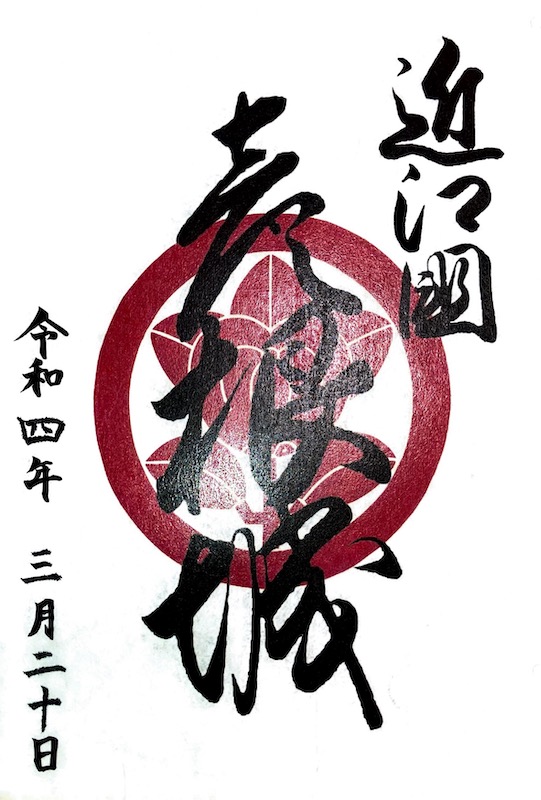 近江國
彦根城
令和四年 三月二十日